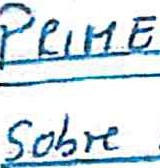 PRIME
Sobre